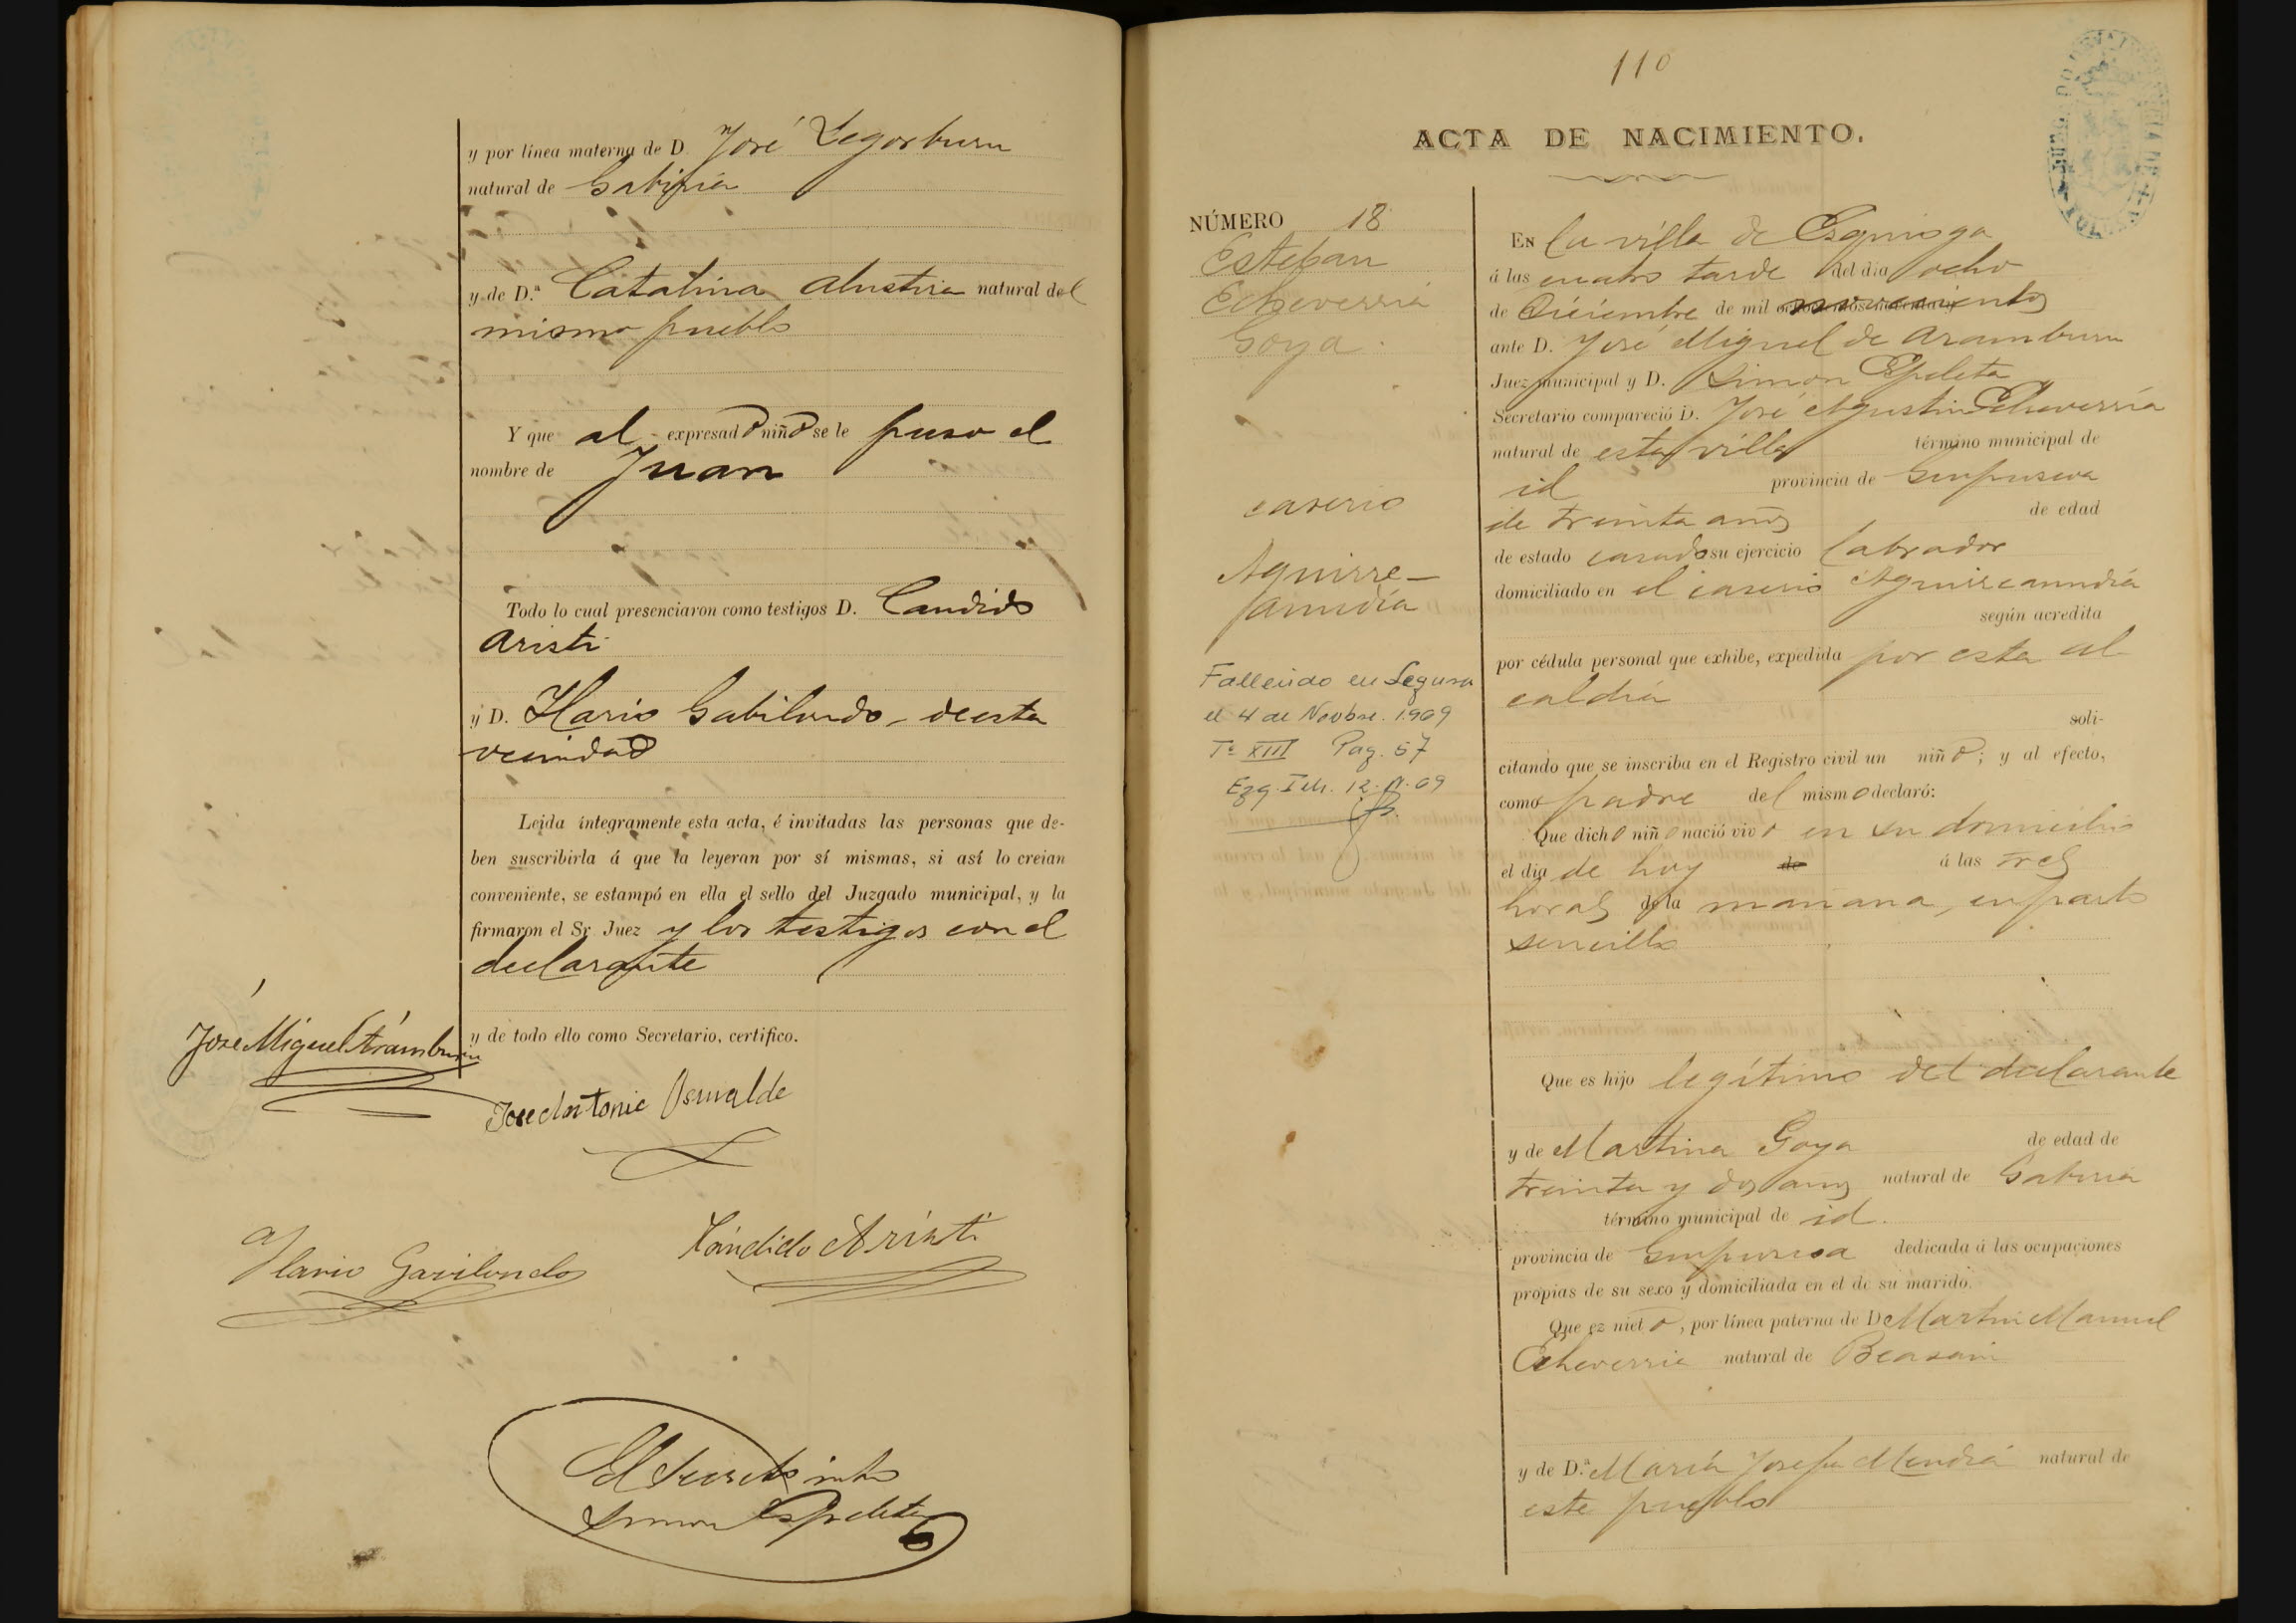 y por línea materna de D. José Legorburu
natural de Gabiria
y de D.ª Catalina Alustiza natural del
mismo pueblo
Y que al expresado niño se le puso el
nombre de Juan
Todo lo cual presenciaron como testigos D. Candido
Aristi
y D. Ilario Gabilondo, de esta
vecindad
Leida íntegramente esta acta, é invitadas las personas que de-
ben suscribirla á que la leyeran por sí mismas, si así lo creian
conveniente, se estampó en ella el sello del Juzgado municipal, y la
firmaron el Sr. Juez y los testigos con el
declarante
y de todo ello como Secretario, certifico.
José Miguel Aramburu
Jose Antonio
Ilario Gavilondo
Cándido Aristi
El Secretario
Simon Espeleta
110
ACTA DE NACIMIENTO.
NÚMERO 18
Esteban
Echeverria
Goya.
caserio
Aguirre-
Fallecido en Segura
el 4 de Novbre. 1.969
Tº XIII Pag. 57
EN la villa de Ezquioga
á las cuatro tarde del dia ocho
de Diciembre de mil novecientos
ante D. José Miguel de Aramburu
Juez municipal y D. Simon Espeleta
Secretario compareció D. José Agustin Echeverria
natural de esta villa término municipal de
id provincia de Guipuzcoa
de treinta años de edad
de estado casado su ejercicio labrador
domiciliado en el caserio
según acredita
por cédula personal que exhibe, expedida por esta al
caldia
soli-
citando que se inscriba en el Registro civil un niño; y al efecto,
como padre del mismo declaró:
Que dicho niño nació vivo en su domicilio
el dia de hoy de á las tres
horas de la mañana, en parto
sencillo
Que es hijo legítimo del declarante
y de Martina Goya de edad de
treinta y dos años natural de Gabiria
término municipal de id.
provincia de Guipuzcoa dedicada á las ocupaciones
propias de su sexo y domiciliada en el de su marido.
Que ez nieto, por línea paterna de D Martin Manuel
Echeverria natural de Beasain
y de D.ª María Josefa Mendia natural de
este pueblo